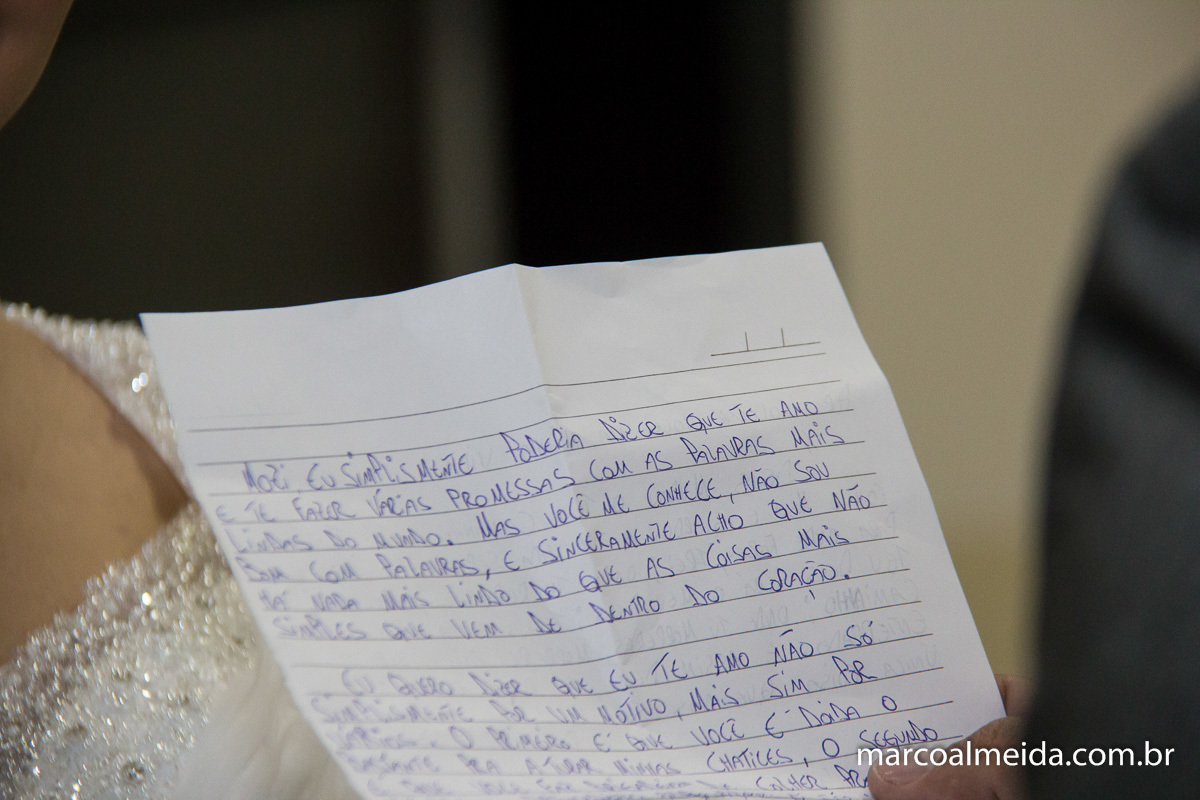 MOZI, EU SIMPLISMENTE PODERIA DIZER QUE TE AMO
E TE FAZER VÁRIAS PROMESSAS COM AS PALAVRAS MAIS
LINDAS DO MUNDO. MAS VOCÊ ME CONHECE, NÃO SOU
BOM COM PALAVRAS, E SINCERAMENTE ACHO QUE NÃO
HÁ NADA MAIS LINDO DO QUE AS COISAS MAIS
SIMPLES QUE VEM DE DENTRO DO CORAÇÃO.
EU QUERO DIZER QUE EU TE AMO NÃO SÓ
SIMPLISMENTE POR UM MOTIVO, MAIS SIM POR
VÁRIOS. O PRIMEIRO É QUE VOCÊ É DOIDA O
BASTANTE PRA ATURAR MINHAS CHATICES, O SEGUNDO
COLHER
marcoalmeida.com.br